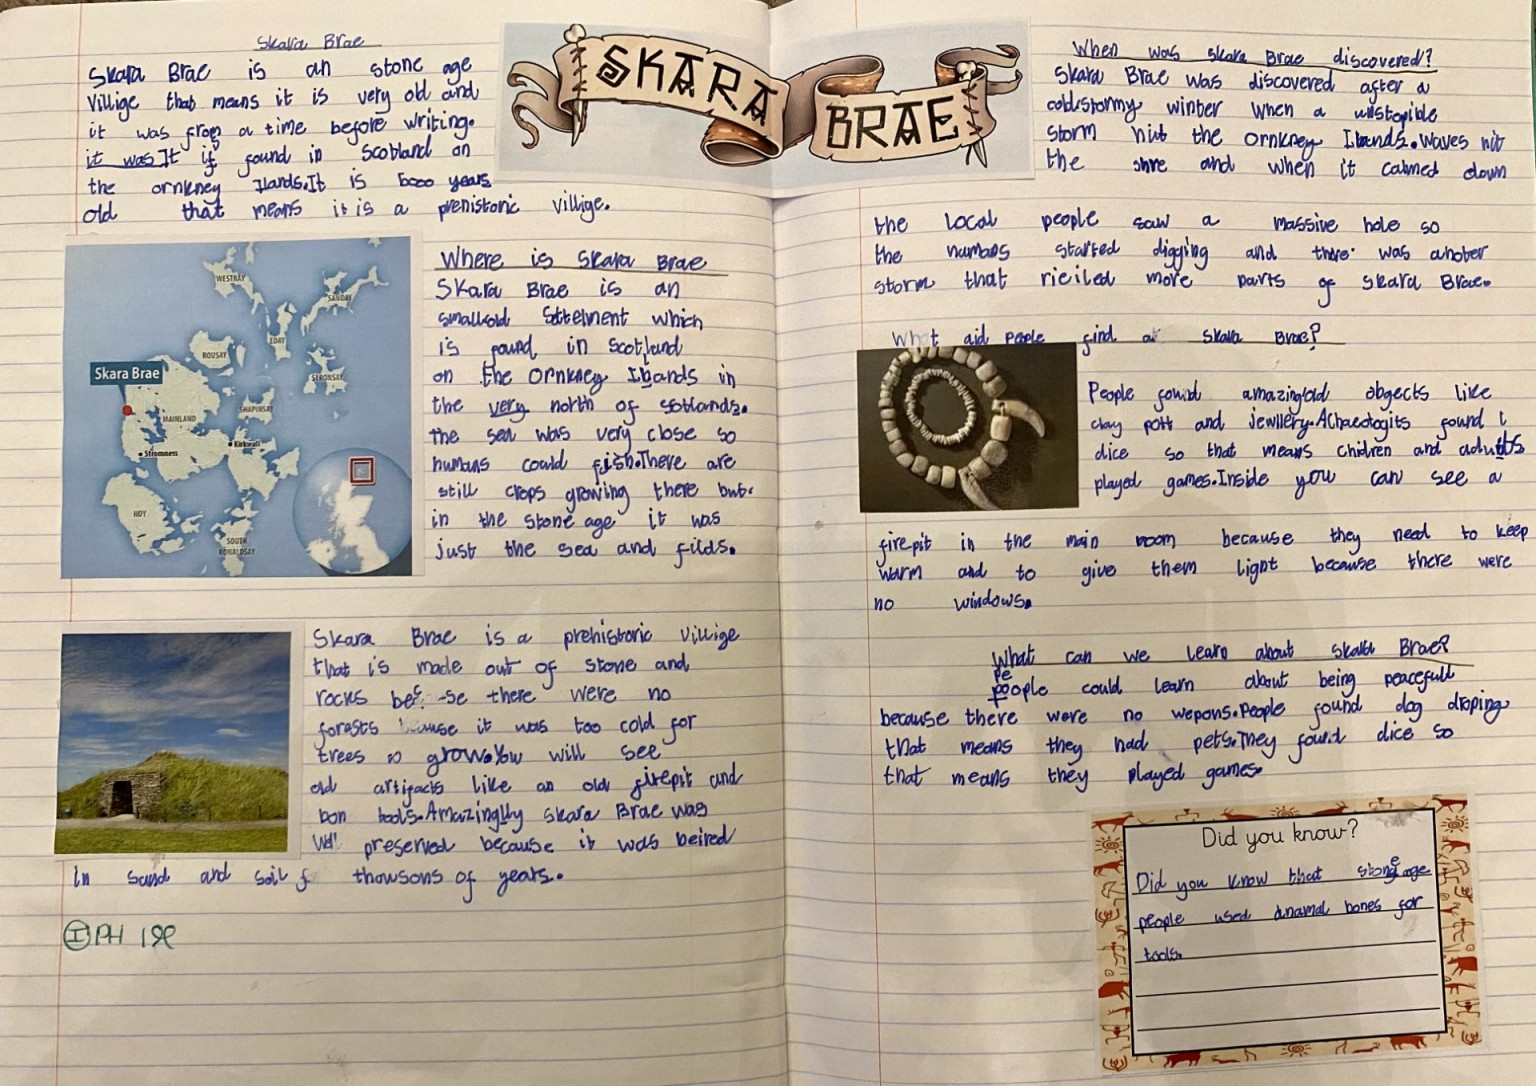 Skara Brae
Skara Brae is an stone age
Villige that means it is very old and
it was from a time before writing.
it was It is found in Scotland on
the ornkney Ilands. It is 5000 years
old that means it is a prehistoric villige.
SKARA BRAE
WESTRAY
SANDAY
ROUSAY
EDAY
STRONSAY
Skara Brae
MAINLAND
SHAPINSAY
Kirkwall
Stromness
HOY
SOUTH RONALDSAY
Where is Skara Brae
Skara Brae is an
small old Settelment which
is found in Scotland
on the Ornkney Islands in
the very north of scotlands.
the sea was very close so
humans could fish. There are
still crops growing there but
in the stone age it was
just the sea and filds.
Skara Brae is a prehistoric Villige
that is made out of stone and
rocks there were no
forests because it was too cold for
trees to grow. You will see
old artifacts like an old firepit and
bon tools. Amazinglly Skara Brae was
preserved because it was beired
in sand and soil f thowsons of years.
I PH
When was skara Brae discovered?
Skara Brae was discovered after a
cold stormy winter when a unstopible
storm hit the Ornkney Ilands. Waves hit
the shre and when it calmed down
the local people saw a massive hole so
the humans started digging and there was another
storm that rieiled more parts of skara Brae.
What did people find at Skara Brae?
People found amazing old obgects like
clay pott and jewllery. Achaeologits found
dice so that means chidren and adults
played games. Inside you can see a
firepit in the main room because they need to keep
warm and to give them light because there were
no windows.
What can we learn about skara Brae?
pe
people could learn about being peacefull
because there were no wepons. People found dog droping
that means they had pets. They found dice so
that means they played games.
Did you know?
Did you know that stone age
people used anamal bones for
tools.